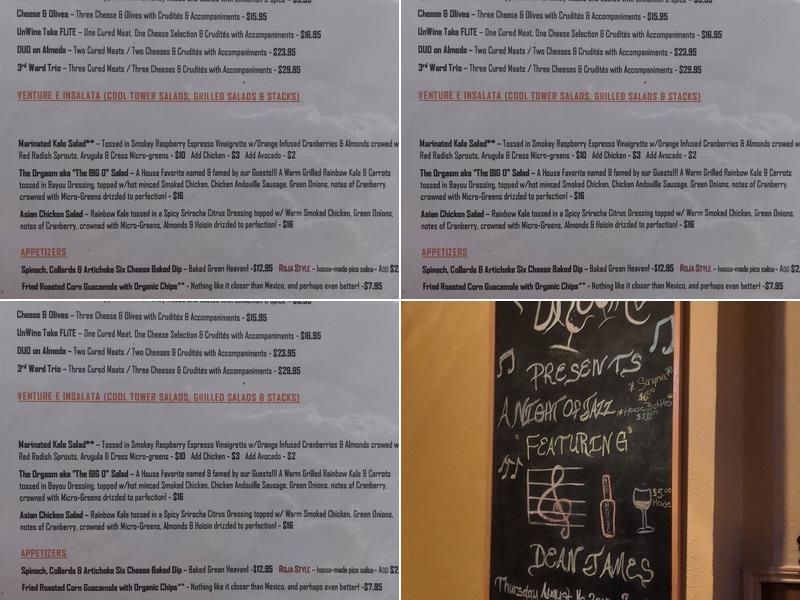 Cheese & Olives – Three Cheese & Olives with Crudités & Accompaniments - $15.95
UnWine Take FLiTE – One Cured Meat, One Cheese Selection & Crudités with Accompaniments - $16.95
DUO on Almeda – Two Cured Meats / Two Cheeses & Crudités with Accompaniments - $23.95
3rd Ward Trio – Three Cured Meats / Three Cheeses & Crudités with Accompaniments - $29.95
VENTURE E INSALATA (COOL TOWER SALADS, GRILLED SALADS & STACKS)
Marinated Kale Salad** – Tossed in Smokey Raspberry Espresso Vinaigrette w/Orange Infused Cranberries & Almonds crowed
Red Radish Sprouts, Arugula & Cress Micro-greens - $10 Add Chicken - $3 Add Avocado - $2
The Orgasm aka "The BIG O" Salad – A House Favorite named & famed by our Guests!!! A Warm Grilled Rainbow Kale & Carrots
tossed in Bayou Dressing, topped w/hot minced Smoked Chicken, Chicken Andouille Sausage, Green Onions, notes of Cranberry,
crowned with Micro-Greens drizzled to perfection! - $16
Asian Chicken Salad – Rainbow Kale tossed in a Spicy Sriracha Citrus Dressing topped w/ Warm Smoked Chicken, Green Onions,
notes of Cranberry, crowned with Micro-Greens, Almonds & Hoisin drizzled to perfection! - $16
APPETIZERS
Spinach, Collards & Artichoke Six Cheese Baked Dip – Baked Green Heaven! -$12.95 ROJA STYLE – house-made pico salsa - ADD $2
Fried Roasted Corn Guacamole with Organic Chips** - Nothing like it closer than Mexico, and perhaps even better! -$7.95
Cheese & Olives – Three Cheese & Olives with Crudités & Accompaniments - $15.95
UnWine Take FLiTE – One Cured Meat, One Cheese Selection & Crudités with Accompaniments - $16.95
DUO on Almeda – Two Cured Meats / Two Cheeses & Crudités with Accompaniments - $23.95
3rd Ward Trio – Three Cured Meats / Three Cheeses & Crudités with Accompaniments - $29.95
VENTURE E INSALATA (COOL TOWER SALADS, GRILLED SALADS & STACKS)
Marinated Kale Salad** – Tossed in Smokey Raspberry Espresso Vinaigrette w/Orange Infused Cranberries & Almonds crowed
Red Radish Sprouts, Arugula & Cress Micro-greens - $10 Add Chicken - $3 Add Avocado - $2
The Orgasm aka "The BIG O" Salad – A House Favorite named & famed by our Guests!!! A Warm Grilled Rainbow Kale & Carrots
tossed in Bayou Dressing, topped w/hot minced Smoked Chicken, Chicken Andouille Sausage, Green Onions, notes of Cranberry,
crowned with Micro-Greens drizzled to perfection! - $16
Asian Chicken Salad – Rainbow Kale tossed in a Spicy Sriracha Citrus Dressing topped w/ Warm Smoked Chicken, Green Onions,
notes of Cranberry, crowned with Micro-Greens, Almonds & Hoisin drizzled to perfection! - $16
APPETIZERS
Spinach, Collards & Artichoke Six Cheese Baked Dip – Baked Green Heaven! -$12.95 ROJA STYLE – house-made pico salsa - ADD $2
Fried Roasted Corn Guacamole with Organic Chips** - Nothing like it closer than Mexico, and perhaps even better! -$7.95
Cheese & Olives – Three Cheese & Olives with Crudités & Accompaniments - $15.95
UnWine Take FLiTE – One Cured Meat, One Cheese Selection & Crudités with Accompaniments - $16.95
DUO on Almeda – Two Cured Meats / Two Cheeses & Crudités with Accompaniments - $23.95
3rd Ward Trio – Three Cured Meats / Three Cheeses & Crudités with Accompaniments - $29.95
VENTURE E INSALATA (COOL TOWER SALADS, GRILLED SALADS & STACKS)
Marinated Kale Salad** – Tossed in Smokey Raspberry Espresso Vinaigrette w/Orange Infused Cranberries & Almonds crowed
Red Radish Sprouts, Arugula & Cress Micro-greens - $10 Add Chicken - $3 Add Avocado - $2
The Orgasm aka "The BIG O" Salad – A House Favorite named & famed by our Guests!!! A Warm Grilled Rainbow Kale & Carrots
tossed in Bayou Dressing, topped w/hot minced Smoked Chicken, Chicken Andouille Sausage, Green Onions, notes of Cranberry,
crowned with Micro-Greens drizzled to perfection! - $16
Asian Chicken Salad – Rainbow Kale tossed in a Spicy Sriracha Citrus Dressing topped w/ Warm Smoked Chicken, Green Onions,
notes of Cranberry, crowned with Micro-Greens, Almonds & Hoisin drizzled to perfection! - $16
APPETIZERS
Spinach, Collards & Artichoke Six Cheese Baked Dip – Baked Green Heaven! -$12.95 ROJA STYLE – house-made pico salsa - ADD $2
Fried Roasted Corn Guacamole with Organic Chips** - Nothing like it closer than Mexico, and perhaps even better! -$7.95
PRESENTS
A NIGHT OF JAZZ
*Sangria*
$6.00
"FEATURING"
$5.00
House
DEAN JAMES
Thursday August 16